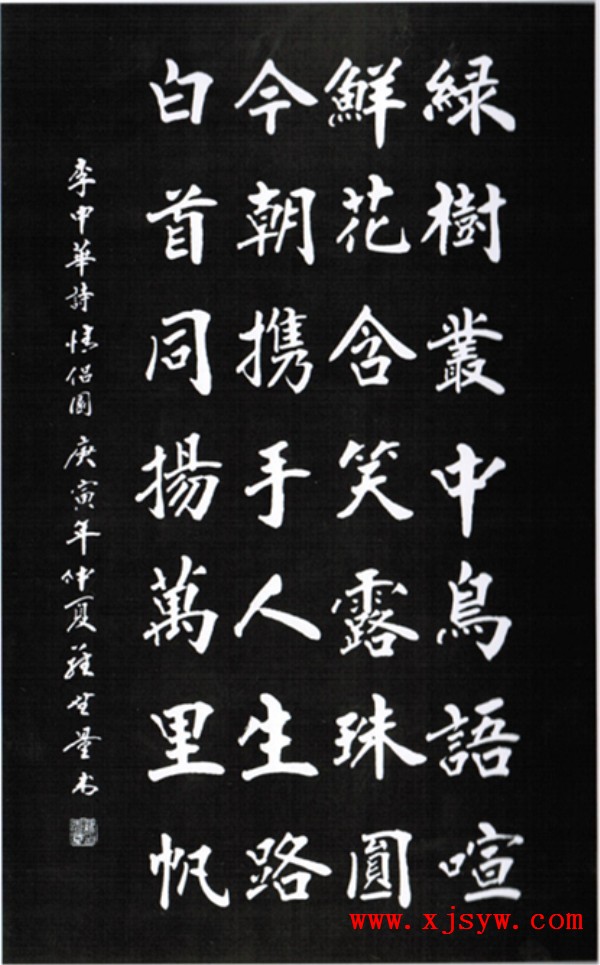 緑樹叢中鳥語喧
鮮花含笑露珠圓
今朝携手人生路
白首同揚萬里帆
李中華詩情侶園 庚寅年仲夏 量书
www.xjsyw.com